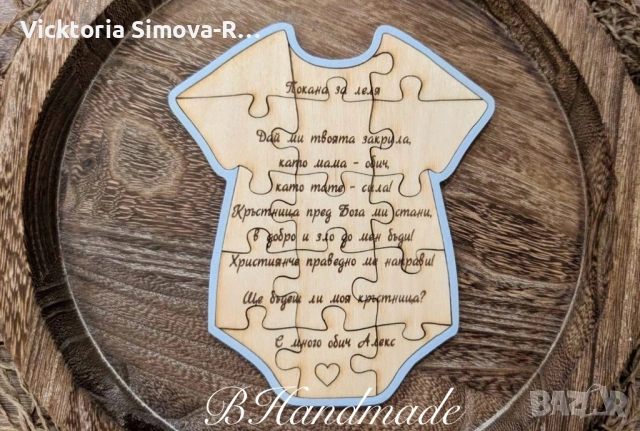 Vicktoria Simova-R...
Покана за леля
Дай ми твоята закрила,
като мама - обич,
като тате - сила!
Кръстница пред Бога ми стани,
в добро и зло до мен бъди!
Християнче праведно ме направи!
Ще бъдеш ли моя кръстница?
С много обич Алекс
BHandmade
BAZAR